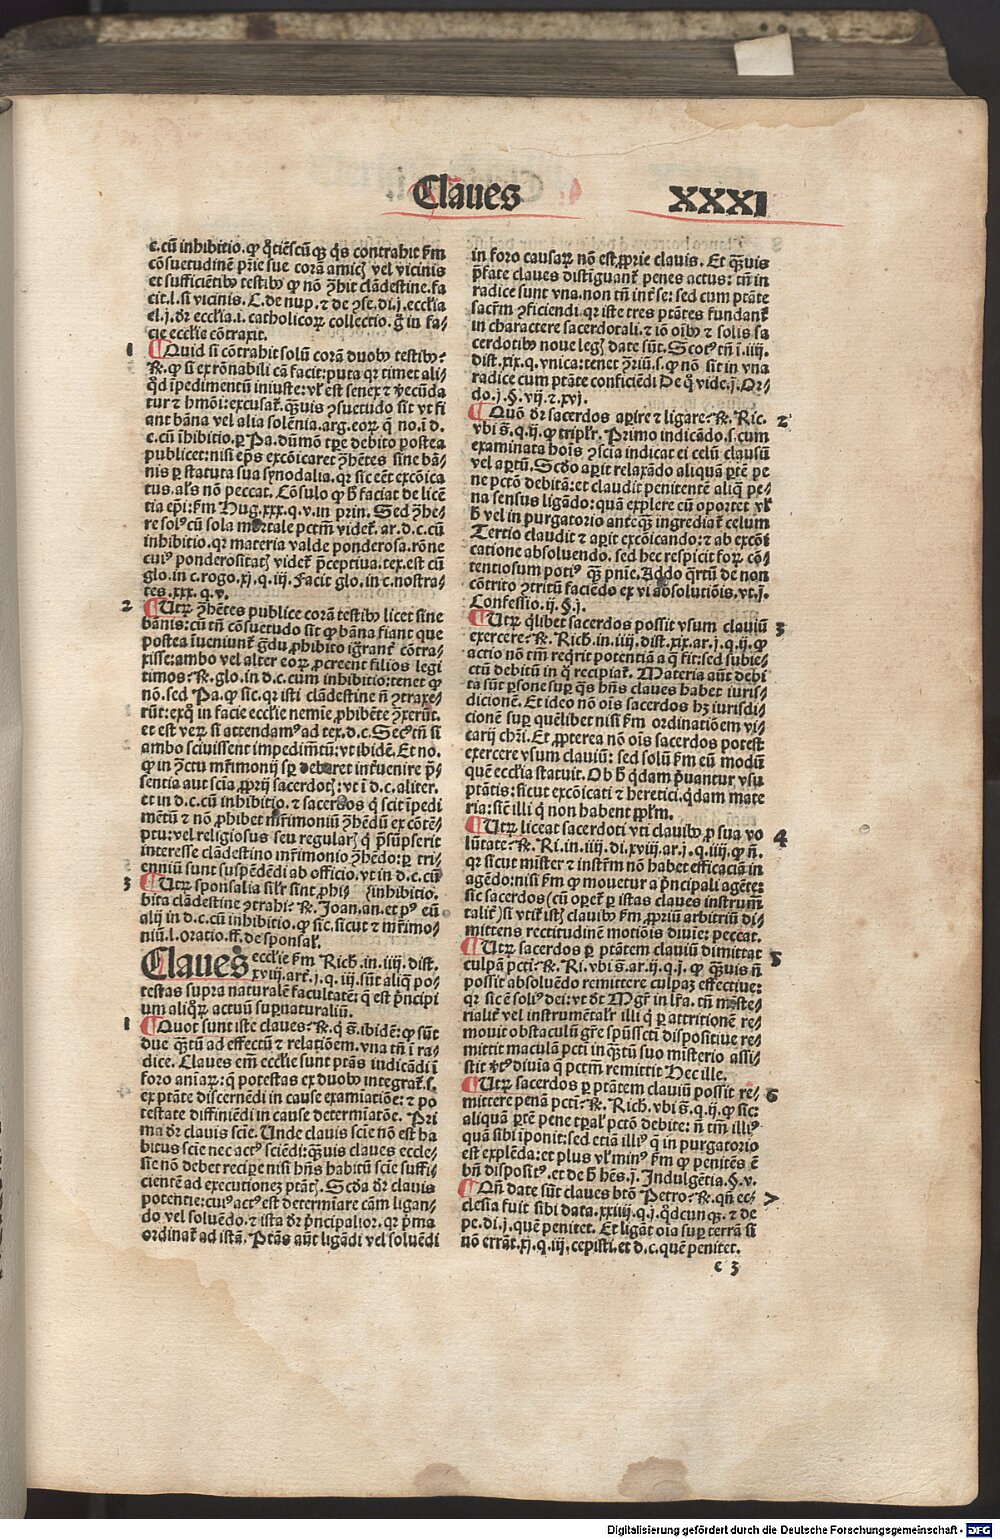 Claues
XXXI
c.cū inhibitio.ꝙ q̄tiēscūqꝫ q̄s contrahit ẜm
cōsuetudinē pr̄ie sue corā amicꝭ vel vicinis
et sufficiētibꝰ testibꝰ ꝙ nō ꝯ̄hit clādestine.fa
cit.l.si vicinis. C. de nup. ⁊ de ↄse.di.j.ecclīa
el.j.dr̄ ecclīa.i. catholicoꝝ collectio. g̊ in fa-
cie ecclīe cōtraxit.
1
Quid si cōtrahit solū corā duobꝰ testibꝰ?
℞.ꝙ si ex rōnabili cā facit:puta qꝛ timet ali-
qd̓ īpedimentū iniuste:vl̓ est senex ⁊ v̓ecūda
tur ⁊ hmōi:excusat̃. qꝫuis ↄsuetudo sit vt fi
ant bāna vel alia solēnia.arg.eoꝝ q̄ no.ī d.
c.cū īhibitio.ꝑ Pa.dūmō tp̄e debito postea
publicet:nisi ep̄s excōicaret ꝯ̄hētes sine bā-
nis ꝑ statuta sua synodalia.qꝛ sic eēt excōica
tus.al̓s nō peccat. Cōsulo ꝙ ħ faciat de licē
tia ep̄i:ẜm Hug.xxx.q.v.in prin. Sed ꝯ̄he-
re solꝰ cū sola mortale pctm̄ videt̃. ar.d.c.cū
inhibitio.qꝛ materia valde ponderosa.rōne
cuiꝰ ponderositatꝭ videt̃ p̄ceptiua.tex.est cū
glo.in c.rogo.xj.q.iij. Facit glo.in c.nostra-
tes.xxx.q.v.
2
Utꝝ ꝯ̄hētes publice corā testibꝰ licet sine
bānis:cū tn̄ cōsuetudo sit ꝙ bāna fiant que
postea īueniunt̃ gdu ꝓhibito igrant̃ cōtra-
xisse:ambo vel alter eoꝝ ꝓcreent filios legi
timos? ℞.glo.in d.c.cum inhibitio:tenet ꝙ
nō.sed Pa.ꝙ sic.qꝛ isti clādestine n̄ ↄtraxe-
rūt:exq̊ in facie ecclīe nemie ꝓhibēte ↄxerūt.
et est veꝝ si attendamꝰ ad tex.d.c. Secꝰ tn̄ si
ambo sciuissent impedim̄tū:vt ibidē. Et no.
ꝙ in ꝯ̄ctu mr̄imonij sp̄ deberet int̃uenire p̄-
sentia aut scīa ꝓprij sacerdotꝭ:vt ī d.c.aliter.
et in d.c.cū inhibitio. ⁊ sacerdos q̇ scit īpedi
mētū ⁊ nō ꝓhibet mr̄imoniū ꝯ̄hēdū ex cōtē-
ptu:vel religiosus seu regularꝭ q̇ p̄sūpserit
interesse clādestino mr̄imonio ꝯ̄hēdo:ꝑ tri-
enniū sunt suspēdēdi ab officio.vt in d.c.cū
3
Utꝝ sponsalia sil̓r sint ꝓhi- (inhibitio.
bita clādestine ↄtrahi? ℞. Joan.an.et pꝰ eū
alij in d.c.cū inhibitio.ꝙ sic.sicut ⁊ mr̄imo-
niū.l.oratio.ff.de sponsal̓.
Claues ecclīe ẜm Rich.in.iiij.dist.
xviij.art̃.j.q.iij.sūt aliq̄ po-
testas supra naturalē facultatē:q̄ est p̄ncipi
um aliq̊ꝝ actuū sup̄naturaliū.
1
Quot sunt iste claues? ℞.q̊ s̄.ibidē:ꝙ sūt
due qꝫtū ad effectū ⁊ relatiōem.vna tn̄ ī ra-
dice. Claues em̄ ecclīe sunt ptās indicādi ī
foro aniaꝝ:q̄ potestas ex duobꝰ integrat̃.s.
ex ptāte discernēdi in cause examiatiōe: ⁊ po
testate diffiniēdi in cause determiatōe. Pri
ma dr̄ clauis scīe. Unde clauis scīe nō est ha
bitus scīe nec actꝰ sciēdi:qꝫuis claues eccle-
sie nō debet recip̄e nisi hn̄s habitū scīe suffi-
cientē ad executionez ptātꝭ. Scd̓a dr̄ clauis
potentie:cuiꝰ actꝰ est determiare cām ligan-
do vel soluēdo. ⁊ ista dr̄ p̄ncipalior.qꝛ p̄ma
ordinat̃ ad istā. Ptās aūt ligādi vel soluēdi
in foro causaꝝ nō est ꝓprie clauis. Et qꝫuis
p̄fate claues distiguant̃ penes actus: tn̄ in
radice sunt vna.non tn̄ int̃ se: sed cum ptāte
sacr̄m ↄficiendi.qꝛ iste tres ptātes fundant̃
in charactere sacerdotali. ⁊ iō oībꝰ ⁊ solis sa
cerdotibꝰ noue legꝭ date sūt. Scotꝰ tn̄ ī.iiij.
dist.xix.q.vnica:tenet ꝯ̄riū.s.ꝙ nō sit in vna
radice cum ptāte conficiēdi De q̊ vide.j. Or-
do.j.§.vij.⁊.xvj.
Quō dr̄ sacerdos ap̄ire ⁊ ligare? ℞. Ric. 2
vbi s̄.q.ij.ꝙ tripl̓r. Primo indicādo.s.cum
examinata hoīs ↄscīa indicat ei celū clausū
vel ap̄tū. Scd̓o ap̄it relaxādo aliquā ꝑtē pe
ne pctō debitā:et claudit penitentē aliq̄ pe-
na sensus ligādo:quā explere eū oportet vl̓
ħ vel in purgatorio anteqꝫ ingrediat̃ celum
Tertio claudit ⁊ ap̄it excōicando: ⁊ ab excōi
catione absoluendo. sed hec respicit foꝝ cō-
tentiosum potiꝰ qꝫ pn̄ie. Addo q̄rtū de non
cōtrito ↄtritū faciēdo ex vi absolutiōis.vt.j.
Confessio.ij.§.j.
Utꝝ q̇libet sacerdos possit vsum clauiū 3
exercere? ℞. Rich.in.iiij.dist.xix.ar.j.q.ij.ꝙ
actio nō tm̄ req̇rit potentiā a q̄ fit:sed subie-
ctū debitū in q̊ recipiat̃. Materia aūt debi
ta sūt ꝑsone suꝑ q̄s hn̄s claues habet iuris-
dicionē. Et ideo nō oīs sacerdos hꝫ iurisdi-
cionē suꝑ quēlibet nisi ẜm ordinatiōem vi-
carij chr̄i. Et ꝓpterea nō oīs sacerdos potest
exercere vsum clauiū: sed solū ẜm eū modū
quē ecclīa statuit. Ob ħ q̇dam p̄uantur vsu
ptātis:sicut excōicati ⁊ heretici.q̇dam mate
ria:sic̄ illi q̇ non habent ppl̓m.
Utꝝ liceat sacerdoti vti clauibꝰ ꝓ sua vo 4
lūtate? ℞. Ri.in.iiij.di.xviij.ar.j.q.iiij.ꝙ n̄.
qꝛ sicut mister ⁊ instr̄m nō habet efficaciā in
agēdo:nisi ẜm ꝙ mouetur a p̄ncipali agēte:
sic sacerdos (cū oꝑet̃ ꝑ istas claues instrum̄
talit̃) si vtit̃ istꝭ clauibꝰ ẜm ꝓpriū arbitriū di-
mittens rectitudinē motiōis diuie: peccat.
Utꝝ sacerdos ꝑ ptātem clauiū dimittat 5
culpā pcti? ℞. Ri.vbi s̄.ar.ij.q.j.ꝙ qꝫuis n̄
possit absoluēdo remittere culpaꝫ effectiue:
qꝛ sic̄ ē soliꝰ dei:vt dt Mgr̄ in lr̄a. tn̄ miste-
rialit̃ vel instrumētal̓r illi q̇ ꝑ attritionē re-
mouit obstaculū gr̄e spūsscti dispositiue re-
mittit maculā pcti in qꝫtū suo misterio assi-
stit v̓tꝰ diuia q̄ pctm̄ remittit Hec ille.
Utꝝ sacerdos ꝑ ptātem clauiū possit re- 6
mittere penā pcti? ℞. Rich.vbi s̄.q.ij.ꝙ sic:
aliquā ꝑtē pene tꝑal̓ pctō debite: n̄ tm̄ illiꝰ
quā sibi īponit:sed etiā illiꝰ q̄ in purgatorio
est explēda:et plus vl̓ minꝰ ẜm ꝙ penitēs ē
bn̄ dispositꝰ.et de ħ hēs.j. Indulgētia.§.v.
Qn̄ date sūt claues btō Petro? ℞.qn̄ ec- 7
clesia fuit sibi data.xxiiij.q.j.q̊dcunqꝫ. ⁊ de
pe.di.j.quē penitet. Et ligāt oīa suꝑ terrā si
nō errāt.xj.q.iij.cepisti.et d.c.quē penitet.
e 3
Digitalisierung gefördert durch die Deutsche Forschungsgemeinschaft - DFG